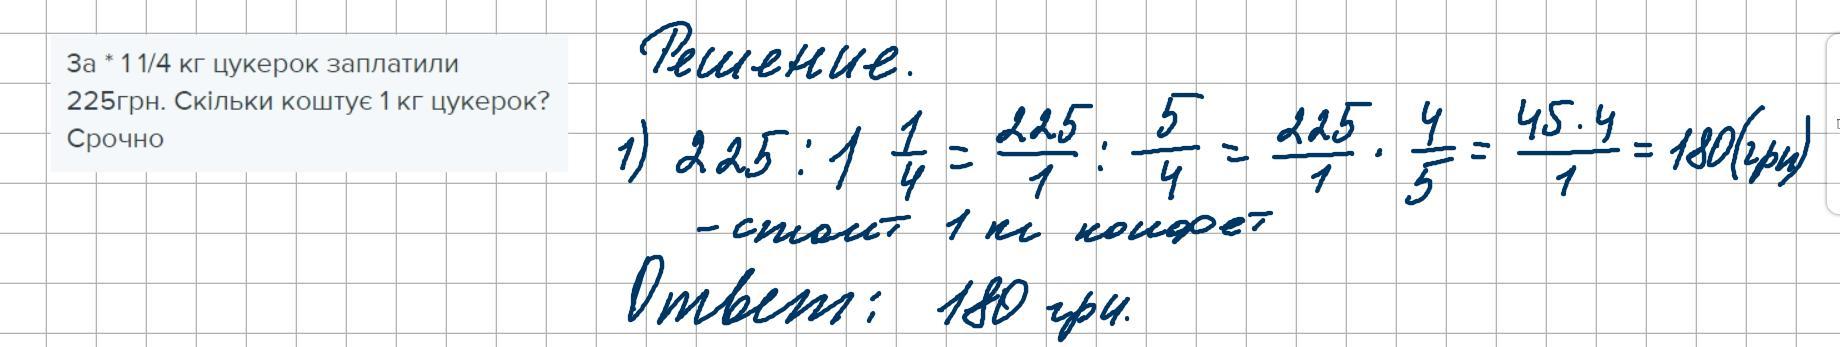 За * 1 1/4 кг цукерок заплатили
225грн. Скільки коштує 1 кг цукерок?
Срочно
Решение.
1) 225 : 1 1/4 = 225/1 : 5/4 = 225/1 · 4/5 = 45·4/1 = 180(грн)
- стоит 1 кг конфет
Ответ: 180 грн.